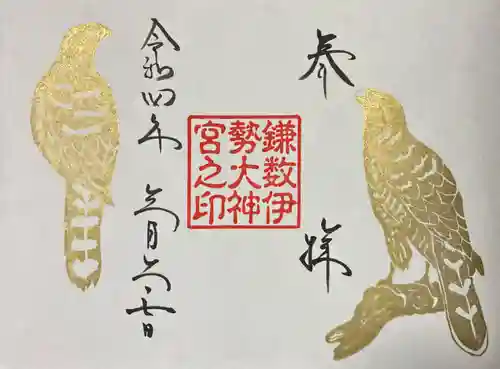 参拝
鎌数伊
勢大神
宮之印
令和四年 月 日